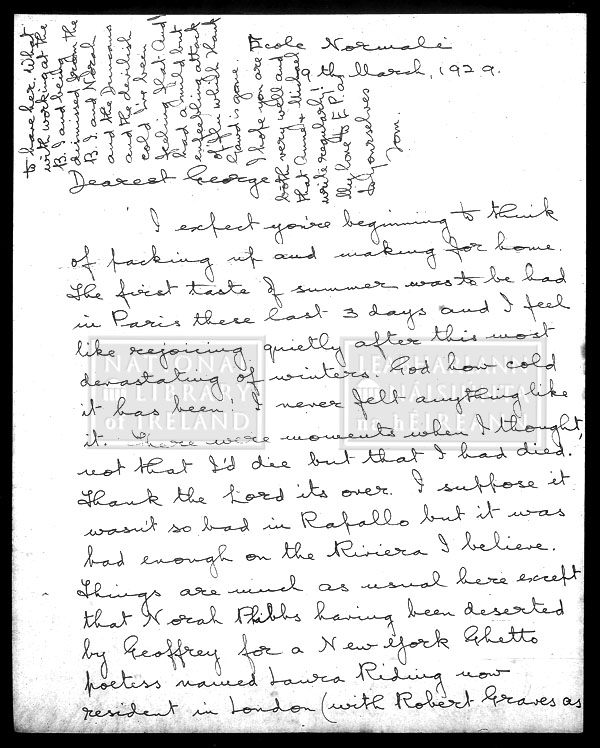 Ecole Normale
9th March, 1929.
Dearest George
I expect you're beginning to think
of packing up and making for home.
The first taste of summer was to be had
in Paris these last 3 days and I feel
like rejoicing quietly after this most
devastating of winters. God how cold
it has been! I never felt anything like
it. There were moments when I thought,
not that I'd die but that I had died.
Thank the Lord its over. I suppose it
wasn't so bad in Rapallo but it was
bad enough on the Riviera I believe.
Things are much as usual here except
that Norah Phibbs having been deserted
by Geoffrey for a New York Ghetto
poetess named Laura Riding now
resident in London (with Robert Graves as
to have her. What
with working at the
B.I. and being
dismissed from the
B.I. and Norah
and the Duncans
and the devilish
cold I've been
feeling that And
had an old but
attack
of flu which thank
God is gone.
I hope you are
both very well and
that Anne & Michael
write regularly!
My love to E.P. and
to yourselves
Tom.
NATIONAL
LIBRARY
of IRELAND
LEABHARLANN
NÁISIÚNTA
na hÉIREANN